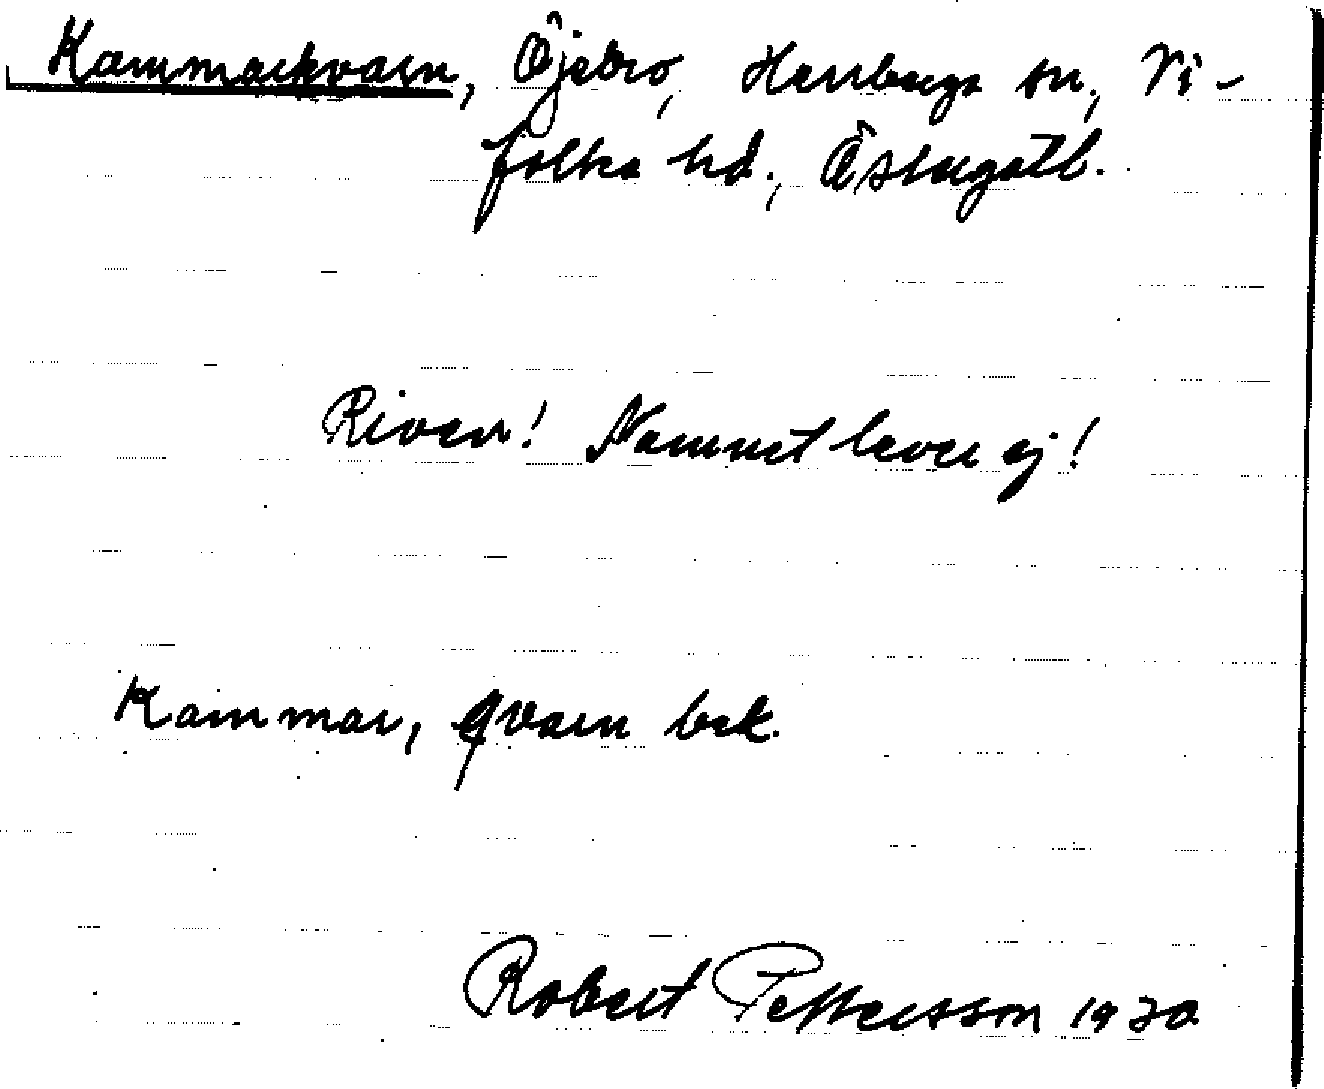 Kammarkvarn, Öjebro, Herrberga sn, Vi-
folka hd., Östergötl.
Riven! Namnet lever ej!
Kammar, qvarn bek.
Robert Pettersson 1930